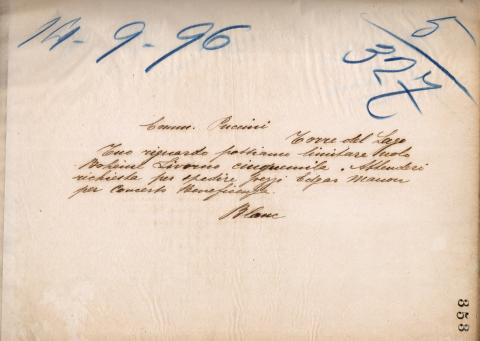 14-9-96
5/327
Comm. Puccini
Torre del Lago
Tuo riguardo possiamo limitare nolo
Bohème Livorno cinquemila. Attenderi
richiesta per spedire pezzi Edgar Manon
per Concerto Beneficenza.
Blanc
353